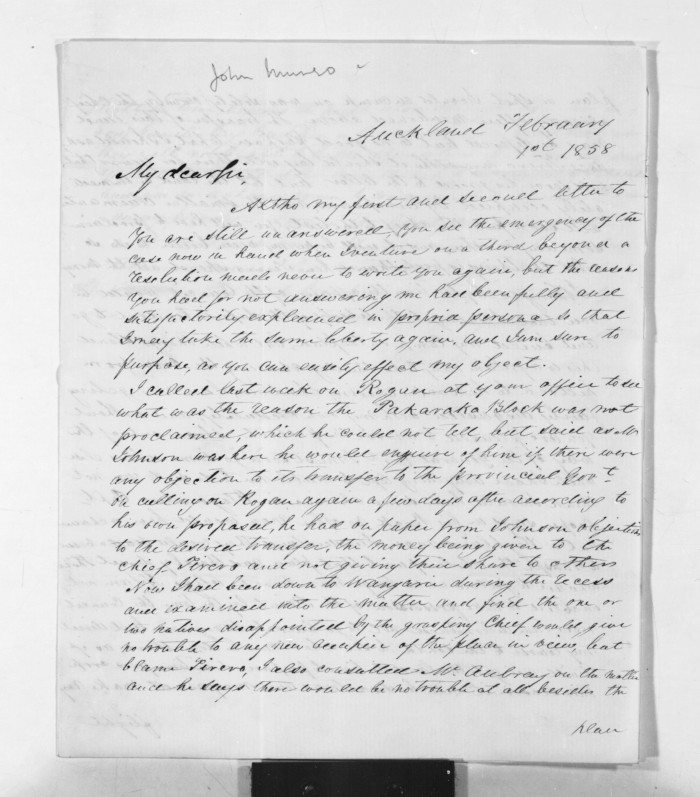 John Munro
Auckland February
1st 1858
My dear Sir,
Altho my first and second letter to
You are still unanswered, You see the emergency of the
case now in hand when I venture on a third beyond a
resolution made never to write you again, but the reasons
You had for not answering me had been fully and
satisfactorily explained in propria persona so that
I may take the same liberty again, and I am sure to
purpose, as you can easily effect my object.
I called last week on Rogan at your office to see
what was the reason the Pakaraka Block was not
proclaimed, which he could not tell, but said as Mr
Johnson was here he would enquire of him if there were
any objection to its transfer to the provincial Govt.
On calling on Rogan again a few days after according to
his own proposal, he had on paper from Johnson objections
to the desired transfer, the money being given to the
Chief Tirero and not giving their share to others
Now I had been down to Wangarie during the recess
and examined into the matter and find the one or
two natives disappointed by the grasping Chief would give
no trouble to any new occupier of the place in view, but
blame Tirero, I also consulted Mr. Aubrey on the matter
and he says there would be no trouble at all besides the
plan